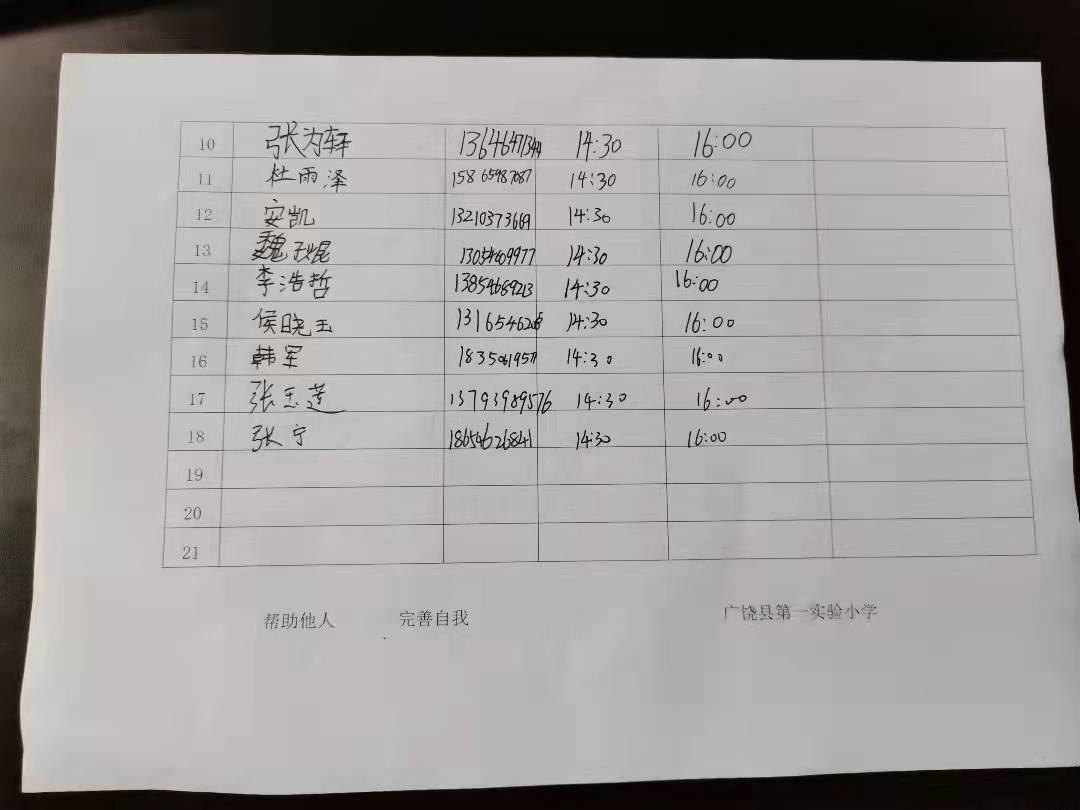 10 张为轩 14:30 16:00
11 杜雨泽 14:30 16:00
12 安凯 13210373669 14:30 16:00
13 魏 14:30 16:00
14 李浩哲 13854689213 14:30 16:00
15 侯晓玉 14:30 16:00
16 韩军 14:30 16:00
17 张玉莲 13793989576 14:30 16:00
18 张宁 18654626841 14:30 16:00
19
20
21
帮助他人 完善自我 广饶县第一实验小学